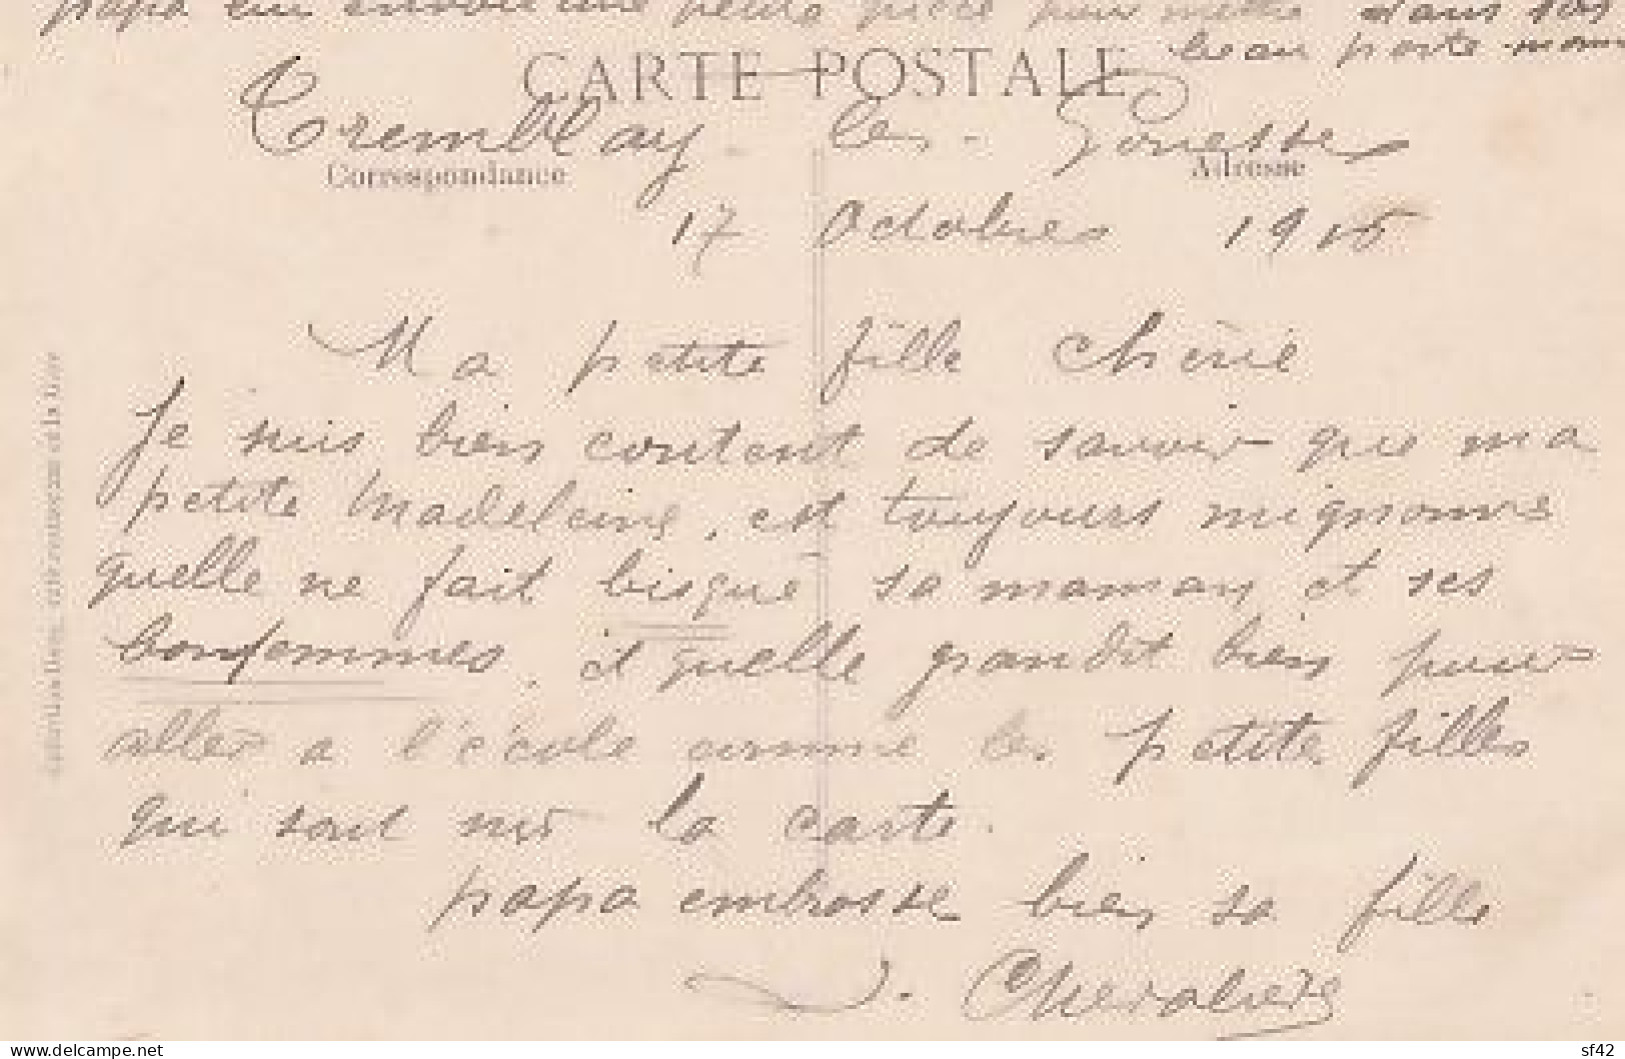 papa lui envoie une petite pièce pour mettre dans son
beau porte-mon
CARTE POSTALE
Tremblay-les-Gonesse
Correspondance
Adresse
17 Octobre 1915
Ma petite fille chérie
Je suis bien content de savoir que ma
petite Madeleine, est toujours mignonne
quelle ne fait bisqué sa maman et ses
bonfemmes, et quelle grandit bien pour
aller a l'école comme les petites filles
qui sont sur la carte.
papa embrasse bien sa fille
Chevaliere
https://www.delcampe.net
sf42